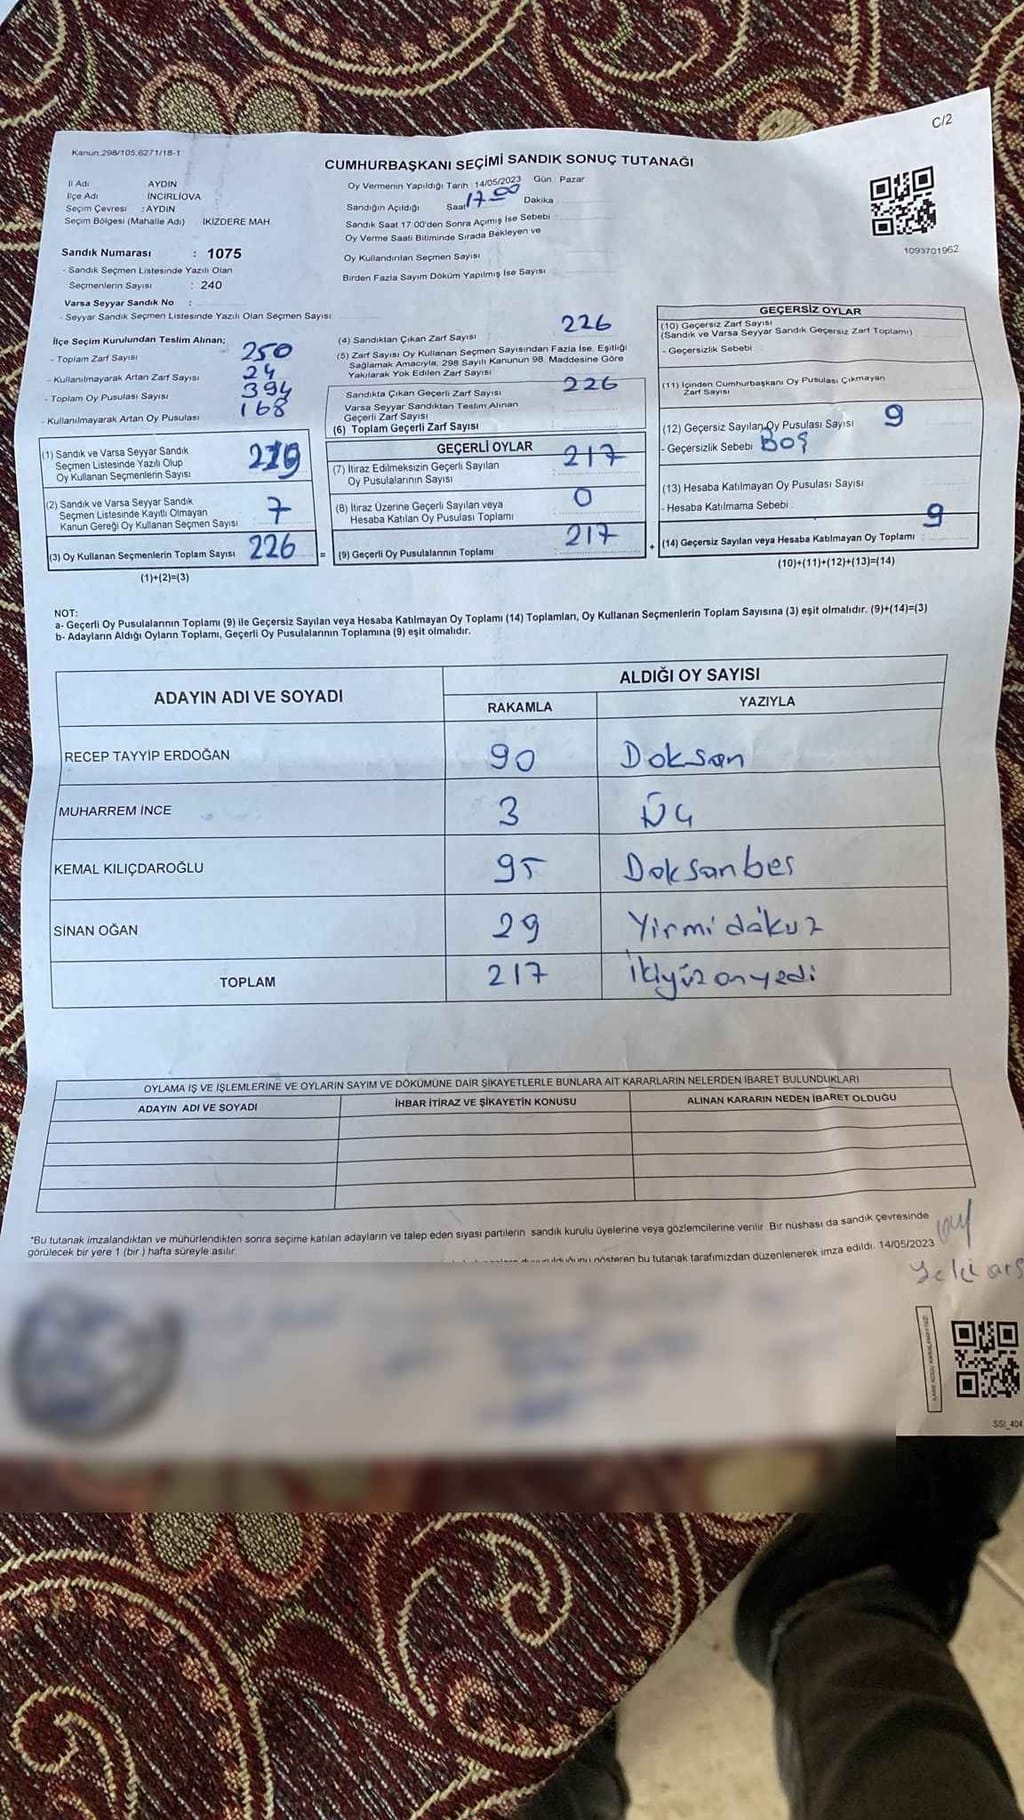 C/2
Kanun:298/105,6271/18-1
CUMHURBAŞKANI SEÇİMİ SANDIK SONUÇ TUTANAĞI
İl Adı AYDIN
İlçe Adı İNCİRLİOVA
Seçim Çevresi : AYDIN
Seçim Bölgesi (Mahalle Adı) İKİZDERE MAH.
Sandık Numarası : 1075
- Sandık Seçmen Listesinde Yazılı Olan
Seçmenlerin Sayısı : 240
Varsa Seyyar Sandık No :
- Seyyar Sandık Seçmen Listesinde Yazılı Olan Seçmen Sayısı:
Oy Vermenin Yapıldığı Tarih : 14/05/2023 Gün : Pazar
Sandığın Açıldığı Saat 17.00 Dakika
Sandık Saat 17:00'den Sonra Açımış İse Sebebi
Oy Verme Saati Bitiminde Sırada Bekleyen ve
Oy Kullandırılan Seçmen Sayısı
Birden Fazla Sayım Döküm Yapılmış İse Sayısı
1093701962
İlçe Seçim Kurulundan Teslim Alınan;
- Toplam Zarf Sayısı 250
- Kullanılmayarak Artan Zarf Sayısı 24
- Toplam Oy Pusulası Sayısı 394
- Kullanılmayarak Artan Oy Pusulası 168
(1) Sandık ve Varsa Seyyar Sandık
Seçmen Listesinde Yazılı Olup
Oy Kullanan Seçmenlerin Sayısı 219
(2) Sandık ve Varsa Seyyar Sandık
Seçmen Listesinde Kayıtlı Olmayan
Kanun Gereği Oy Kullanan Seçmen Sayısı 7
(3) Oy Kullanan Seçmenlerin Toplam Sayısı 226
(1)+(2)=(3)
(4) Sandıktan Çıkan Zarf Sayısı 226
(5) Zarf Sayısı Oy Kullanan Seçmen Sayısından Fazla İse, Eşitliği
Sağlamak Amacıyla, 298 Sayılı Kanunun 98. Maddesine Göre
Yakılarak Yok Edilen Zarf Sayısı
Sandıkta Çıkan Geçerli Zarf Sayısı 226
Varsa Seyyar Sandıktan Teslim Alınan
Geçerli Zarf Sayısı
(6) Toplam Geçerli Zarf Sayısı
GEÇERLİ OYLAR
(7) İtiraz Edilmeksizin Geçerli Sayılan
Oy Pusulalarının Sayısı 217
(8) İtiraz Üzerine Geçerli Sayılan veya
Hesaba Katılan Oy Pusulası Toplamı 0
= (9) Geçerli Oy Pusulalarının Toplamı 217
GEÇERSİZ OYLAR
(10) Geçersiz Zarf Sayısı
(Sandık ve Varsa Seyyar Sandık Geçersiz Zarf Toplamı)
- Geçersizlik Sebebi
(11) İçinden Cumhurbaşkanı Oy Pusulası Çıkmayan
Zarf Sayısı
(12) Geçersiz Sayılan Oy Pusulası Sayısı 9
- Geçersizlik Sebebi BOŞ
(13) Hesaba Katılmayan Oy Pusulası Sayısı
- Hesaba Katılmama Sebebi
+ (14) Geçersiz Sayılan veya Hesaba Katılmayan Oy Toplamı 9
(10)+(11)+(12)+(13)=(14)
NOT:
a- Geçerli Oy Pusulalarının Toplamı (9) ile Geçersiz Sayılan veya Hesaba Katılmayan Oy Toplamı (14) Toplamları, Oy Kullanan Seçmenlerin Toplam Sayısına (3) eşit olmalıdır. (9)+(14)=(3)
b- Adayların Aldığı Oyların Toplamı, Geçerli Oy Pusulalarının Toplamına (9) eşit olmalıdır.
ADAYIN ADI VE SOYADI ALDIĞI OY SAYISI
RAKAMLA YAZIYLA
RECEP TAYYİP ERDOĞAN 90 Doksan
MUHARREM İNCE 3 Üç
KEMAL KILIÇDAROĞLU 95 Doksanbeş
SİNAN OĞAN 29 Yirmi dokuz
TOPLAM 217 İkiyüzonyedi
OYLAMA İŞ VE İŞLEMLERİNE VE OYLARIN SAYIM VE DÖKÜMÜNE DAİR ŞİKAYETLERLE BUNLARA AİT KARARLARIN NELERDEN İBARET BULUNDUKLARI
ADAYIN ADI VE SOYADI İHBAR İTİRAZ VE ŞİKAYETİN KONUSU ALINAN KARARIN NEDEN İBARET OLDUĞU
*Bu tutanak imzalandıktan ve mühürlendikten sonra seçime katılan adayların ve talep eden siyasi partilerin sandık kurulu üyelerine veya gözlemcilerine verilir. Bir nüshası da sandık çevresinde
görülecek bir yere 1 (bir) hafta süreyle asılır.
gösteren bu tutanak tarafımızdan düzenlenerek imza edildi. 14/05/2023
SSİ_404